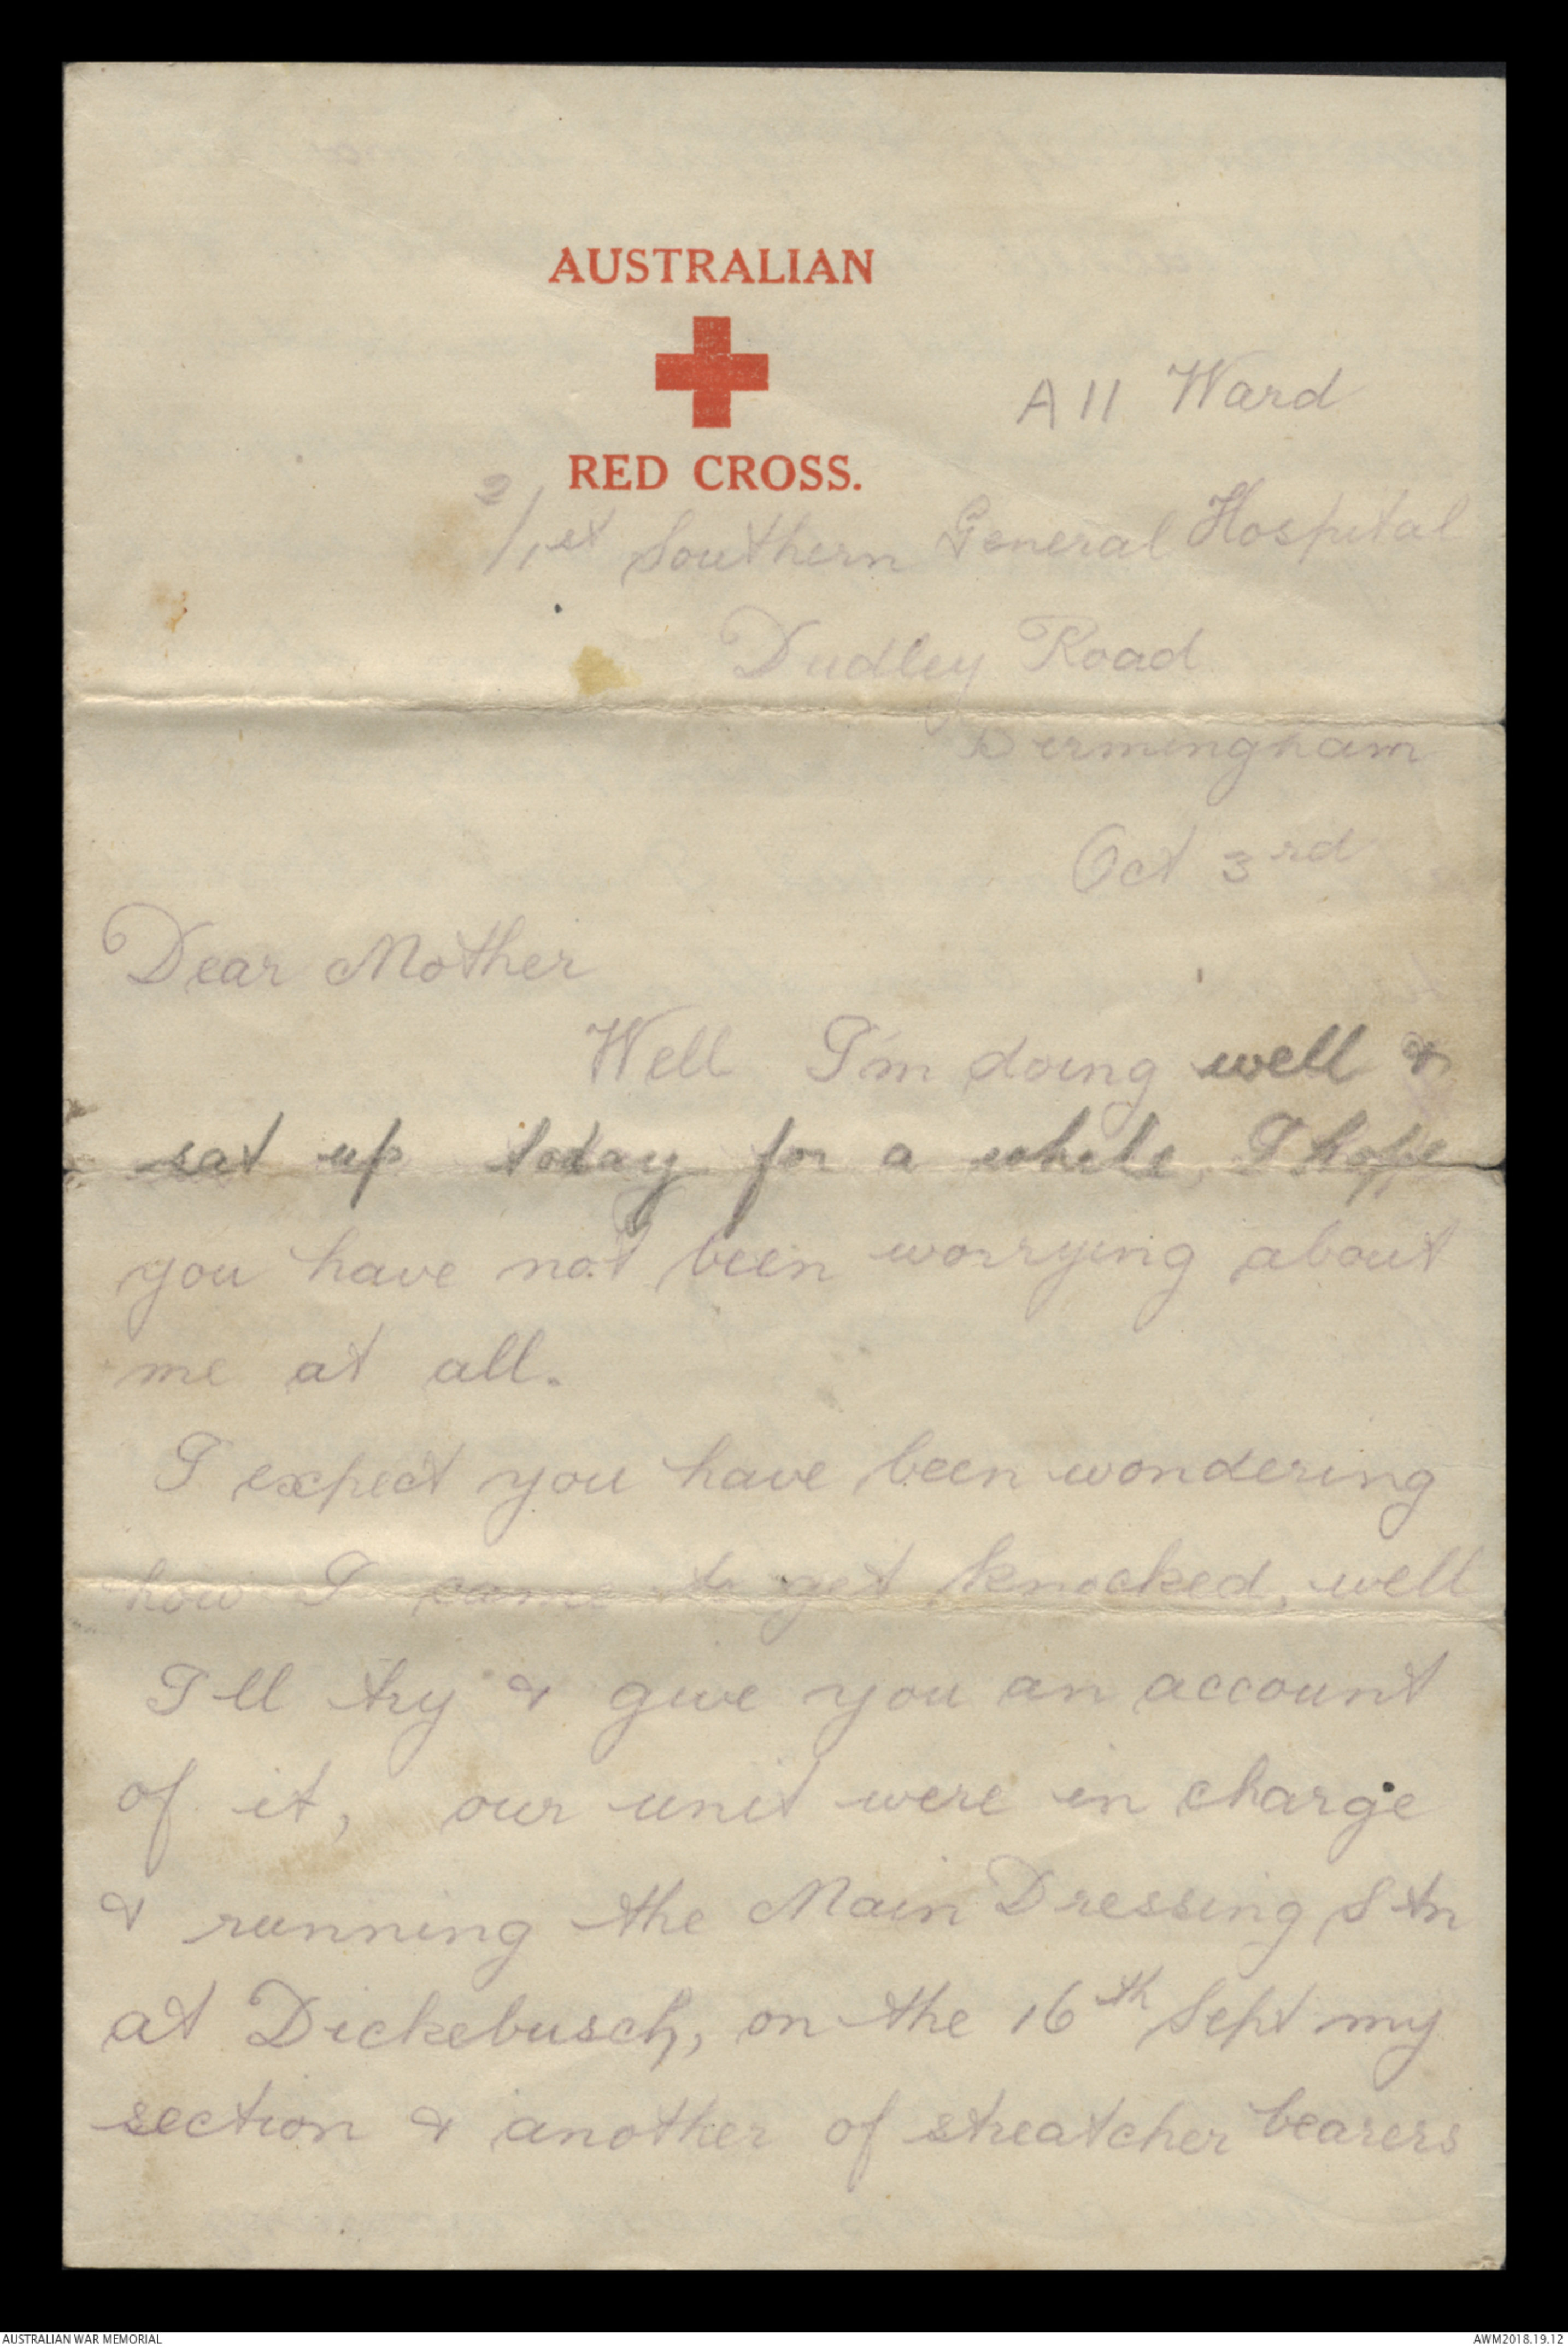 AUSTRALIAN
RED CROSS.
A 11 Ward
2/1st Southern General Hospital
Dudley Road
Birmingham
Oct 3rd
Dear Mother
Well I'm doing well &
sat up today for a while, I hope
you have not been worrying about
me at all.
I expect you have been wondering
how I came to get knocked, well
I'll try & give you an account
of it, our unit were in charge
& running the Main Dressing Stn
at Dickebusch, on the 16th Sept my
section & another of streatcher bearers
AUSTRALIAN WAR MEMORIAL
AWM2018.19.12